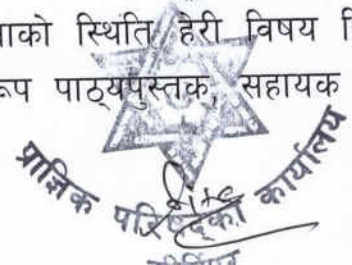 ाको स्थिति हेरी विषय f
प पाठ्यपुस्तक, सहायक
प्राज्ञिक परिषद्को कार्यालय
कीर्तिपुर